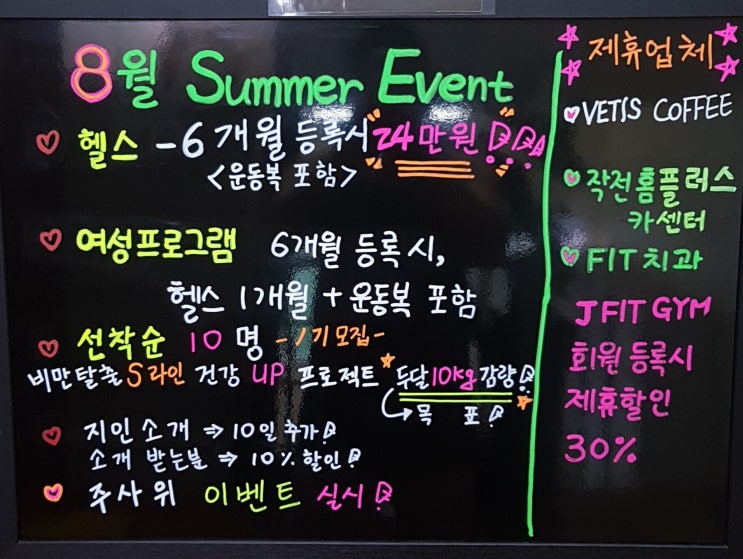 8월 Summer Event
헬스 - 6개월 등록시 24만원!!!
<운동복 포함>
여성프로그램 6개월 등록 시,
헬스 1개월 + 운동복 포함
선착순 10명 -1기 모집-
비만탈출 S라인 건강 UP 프로젝트 두달 10kg 감량!
→ 목 표!
지인소개 ⇒ 10일 추가!
소개 받는분 ⇒ 10% 할인!
주사위 이벤트 실시!
제휴업체
VETIS COFFEE
작전홈플러스
카센터
FIT치과
JFIT GYM
회원 등록시
제휴할인
30%